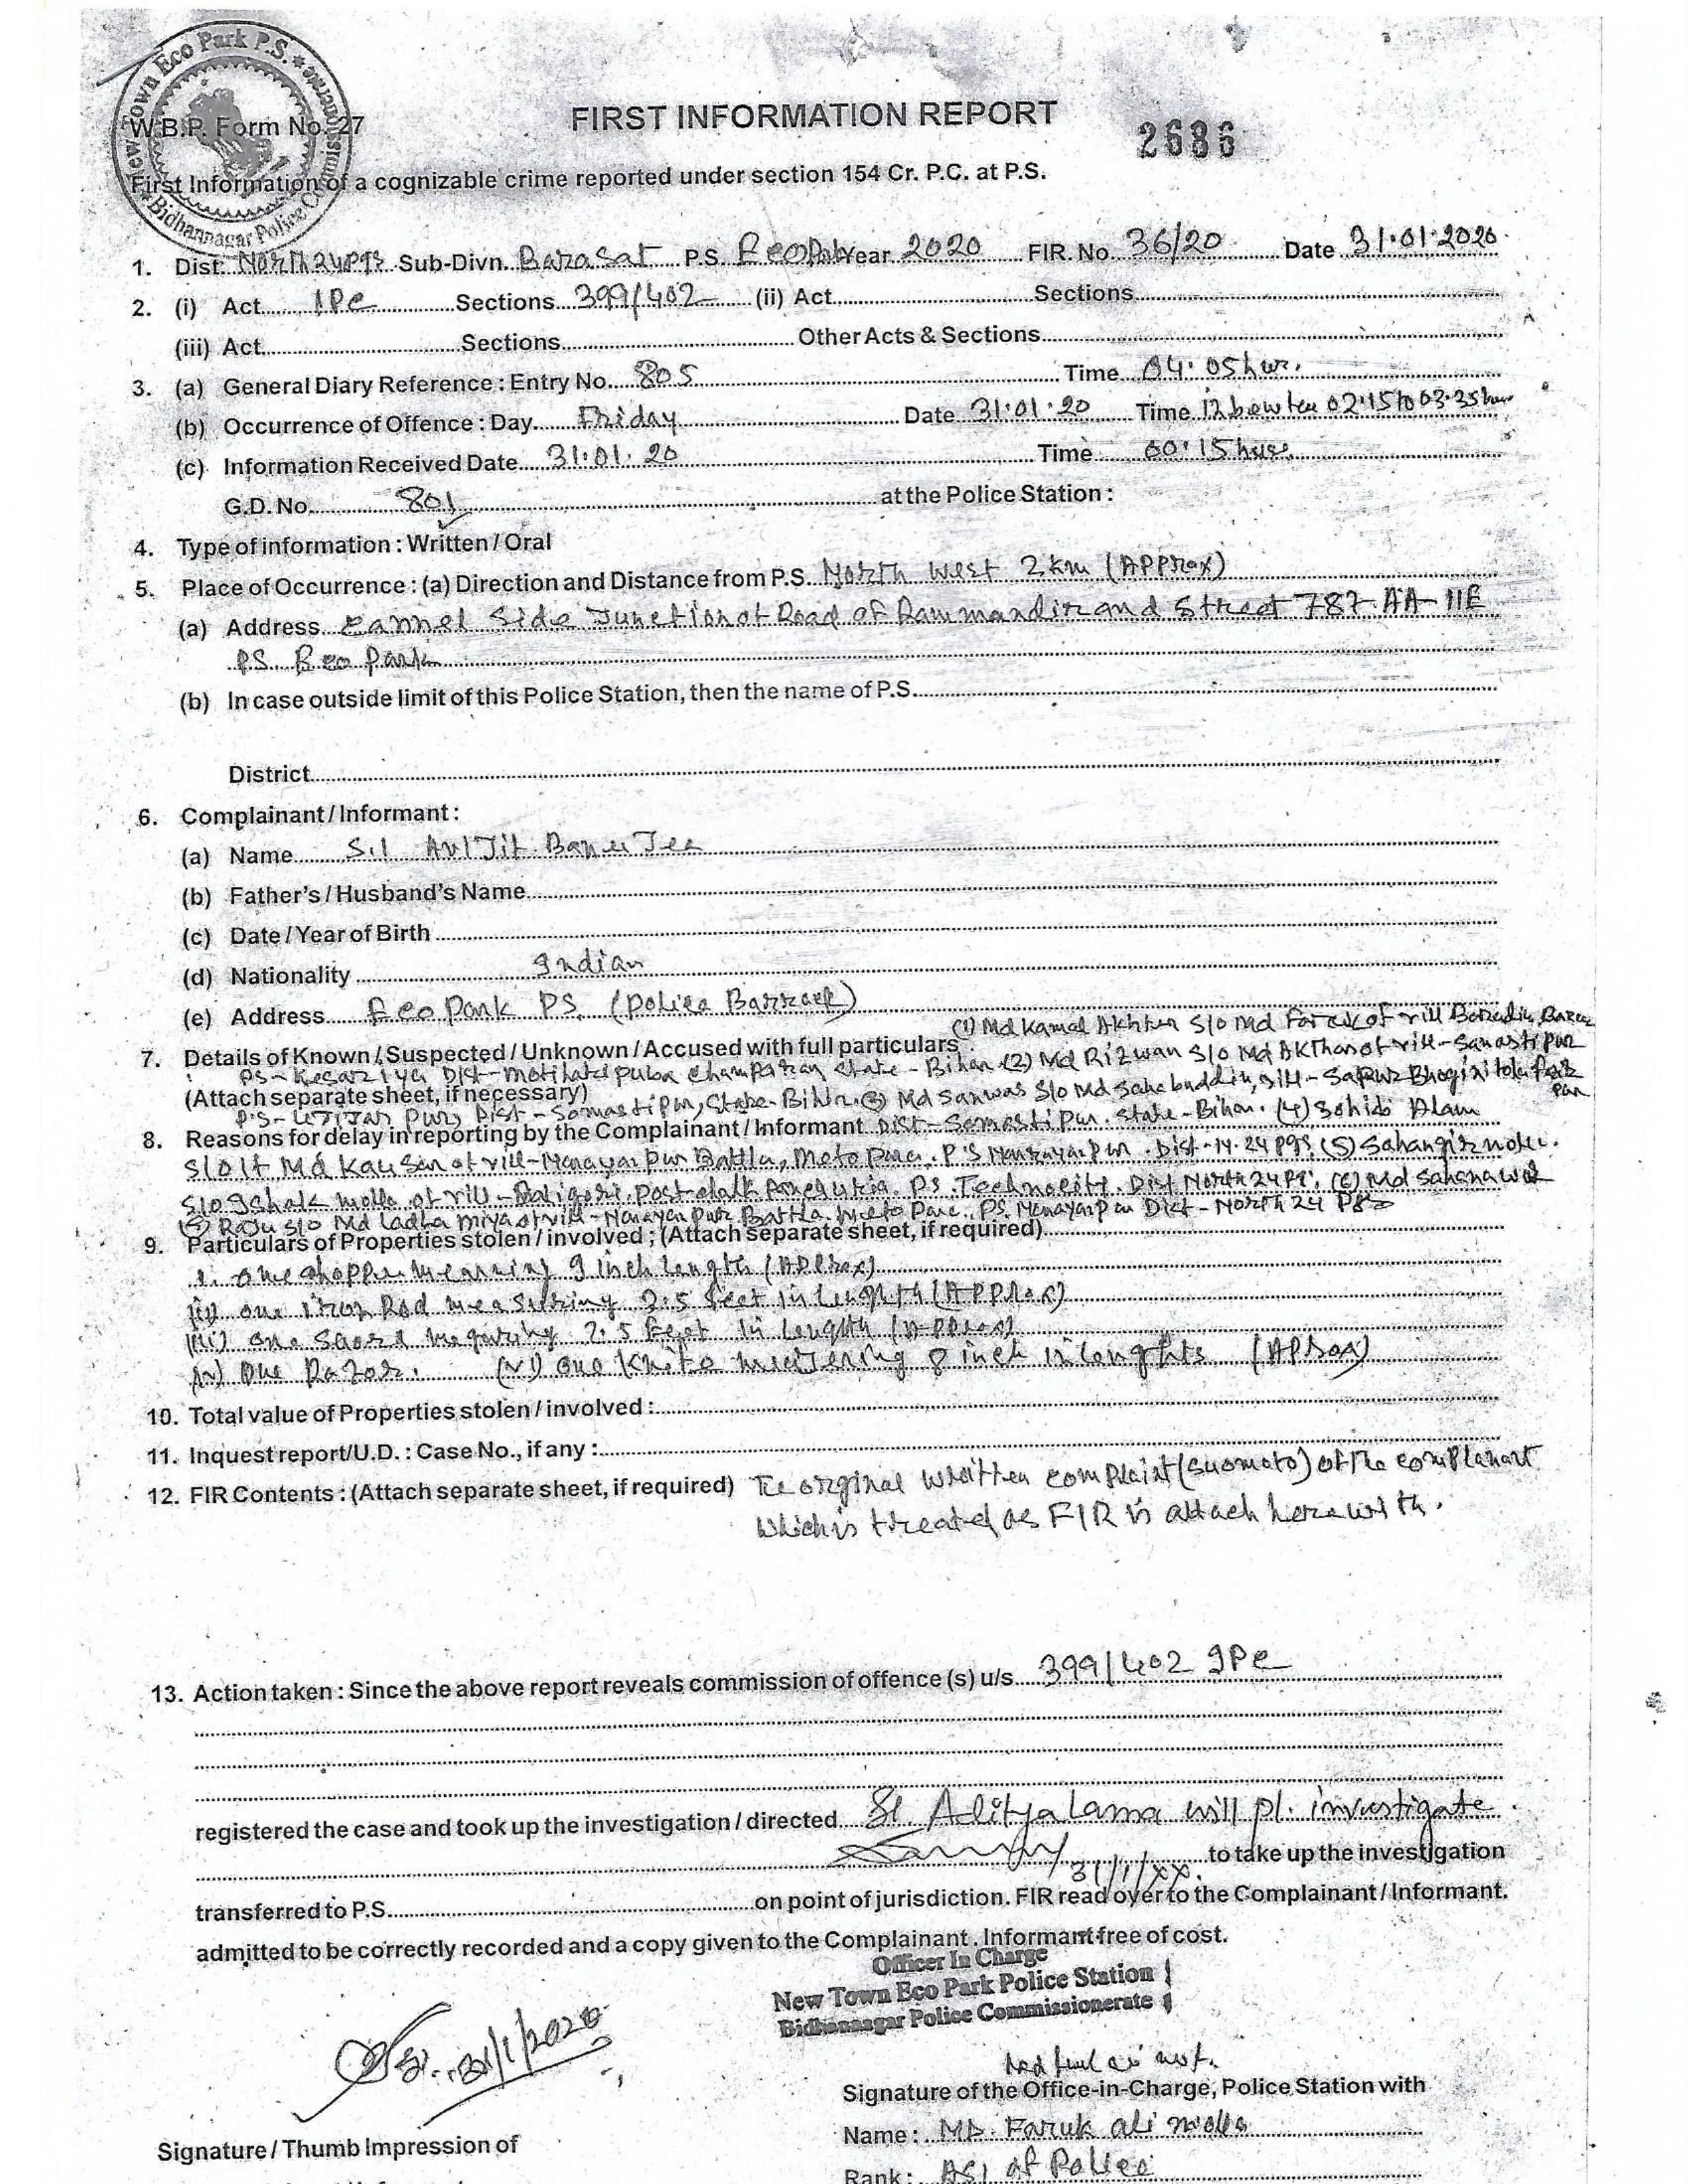 New Town Eco Park P.S. * Bidhannagar Police Commissionerate *
W.B.P. Form No. 27
FIRST INFORMATION REPORT
2686
First Information of a cognizable crime reported under section 154 Cr. P.C. at P.S.
1. Dist. North 24 Pgs Sub-Divn. Barasat P.S. Eco Park Year 2020 FIR. No. 36/20 Date 31.01.2020
2. (i) Act IPC Sections 399/402 (ii) Act Sections
(iii) Act Sections Other Acts & Sections
3. (a) General Diary Reference : Entry No. 805 Time 04:05 hur.
(b) Occurrence of Offence : Day Friday Date 31.01.20 Time 02.15 to 03.35 hur
(c) Information Received Date 31.01.20 Time 00:15 hurs
G.D. No. 801 at the Police Station :
4. Type of information : Written / Oral
5. Place of Occurrence : (a) Direction and Distance from P.S. North West 2 km (APProx)
(a) Address Cannel Side Junction of Road of Rammandir and Street 787 AA-IIE
PS. Eco Park
(b) In case outside limit of this Police Station, then the name of P.S.
District
6. Complainant / Informant :
(a) Name S.I AviJit BanerJee
(b) Father's / Husband's Name
(c) Date / Year of Birth
(d) Nationality Indian
(e) Address Eco Park PS. (Police Barrack)
(1) Md Kamal Akhter S/o Md Faruk of vill
7. Details of Known / Suspected / Unknown / Accused with full particulars
PS - Kesariya Dist - Motihari Champaran State - Bihar (2) Md Rizwan S/o Md AKThar of vill - Samastipur
(Attach separate sheet, if necessary)
PS - UJiJar Pur, Dist - Somastipur, State - Bihar. (3) Md Sanwas S/o Md Sahabuddin, vill -
8. Reasons for delay in reporting by the Complainant / Informant Dist - Somastipur. State - Bihar. (4) Sohid Alam
S/o Lt Md Kausar of vill - Narayanpur Battla, Meto Para. P.S Narayanpur. Dist - N. 24 Pgs. (5) Jahangir molla.
S/o Ishak molla of vill - Baligori. Post - PS. Technocity. Dist North 24 Pgs. (6) Md Sahanawaz
Raju S/o Md Ladha miya of vill - Narayanpur Battla. Meto Para. PS. Narayanpur Dist - North 24 Pgs
9. Particulars of Properties stolen / involved ; (Attach separate sheet, if required)
i. one 9 inch length (APProx)
(ii) one iron Rod measuring 2.5 feet in length (APProx)
(iii) one Saord 2.5 feet in length (APProx)
(iv) One Razor. (vi) one Knife 8 inch in lenghts (APRox)
10. Total value of Properties stolen / involved :
11. Inquest report/U.D. : Case No., if any :
12. FIR Contents : (Attach separate sheet, if required) Te orginal written complaint (suomoto) of the complanant
which is treated as FIR is attach here with.
13. Action taken : Since the above report reveals commission of offence (s) u/s 399/402 IPC
registered the case and took up the investigation / directed SI Aditya Lama will pl. investigate.
31/1/XX. to take up the investigation
transferred to P.S. on point of jurisdiction. FIR read over to the Complainant / Informant.
admitted to be correctly recorded and a copy given to the Complainant. Informant free of cost.
Officer In Charge
New Town Eco Park Police Station
Bidhannagar Police Commissionerate
31/1/2020
Signature of the Office-in-Charge, Police Station with
Name : MD. Faruk ali molla
Signature / Thumb Impression of
Rank : ASI of Police